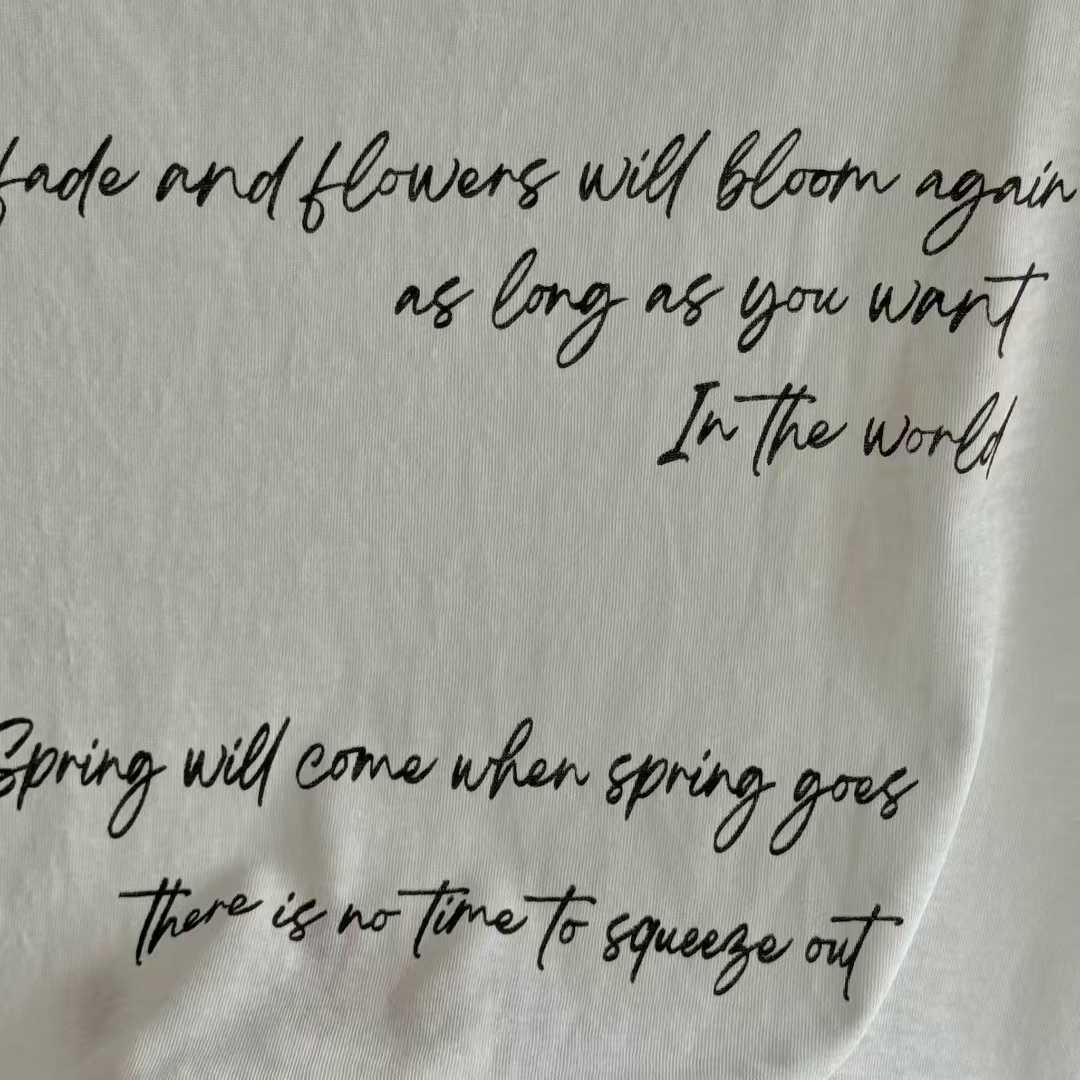 fade and flowers will bloom again
as long as you want
In the world
Spring will come when spring goes
there is no time to squeeze out